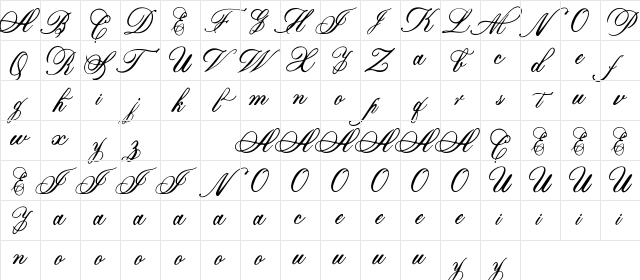 A B C D E F G H I J K L M N O P
Q R S T U V W X Y Z a b c d e f
g h i j k l m n o p q r s t u v
w x y z A A A A A A C E E E
E I I I I N O O O O O O U U U U
Y a a a a a a c e e e e i i i i
n o o o o o o u u u u y y